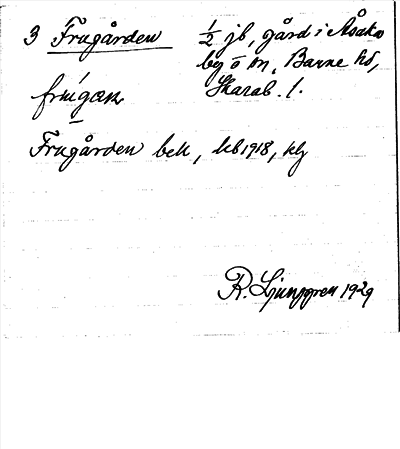 3 Frugården ½ jb, gård i Åsaka
by o m, Barne hd,
Skarab. l.
Frugården bek, kb 1918, klj
R. Ljunggren 1929